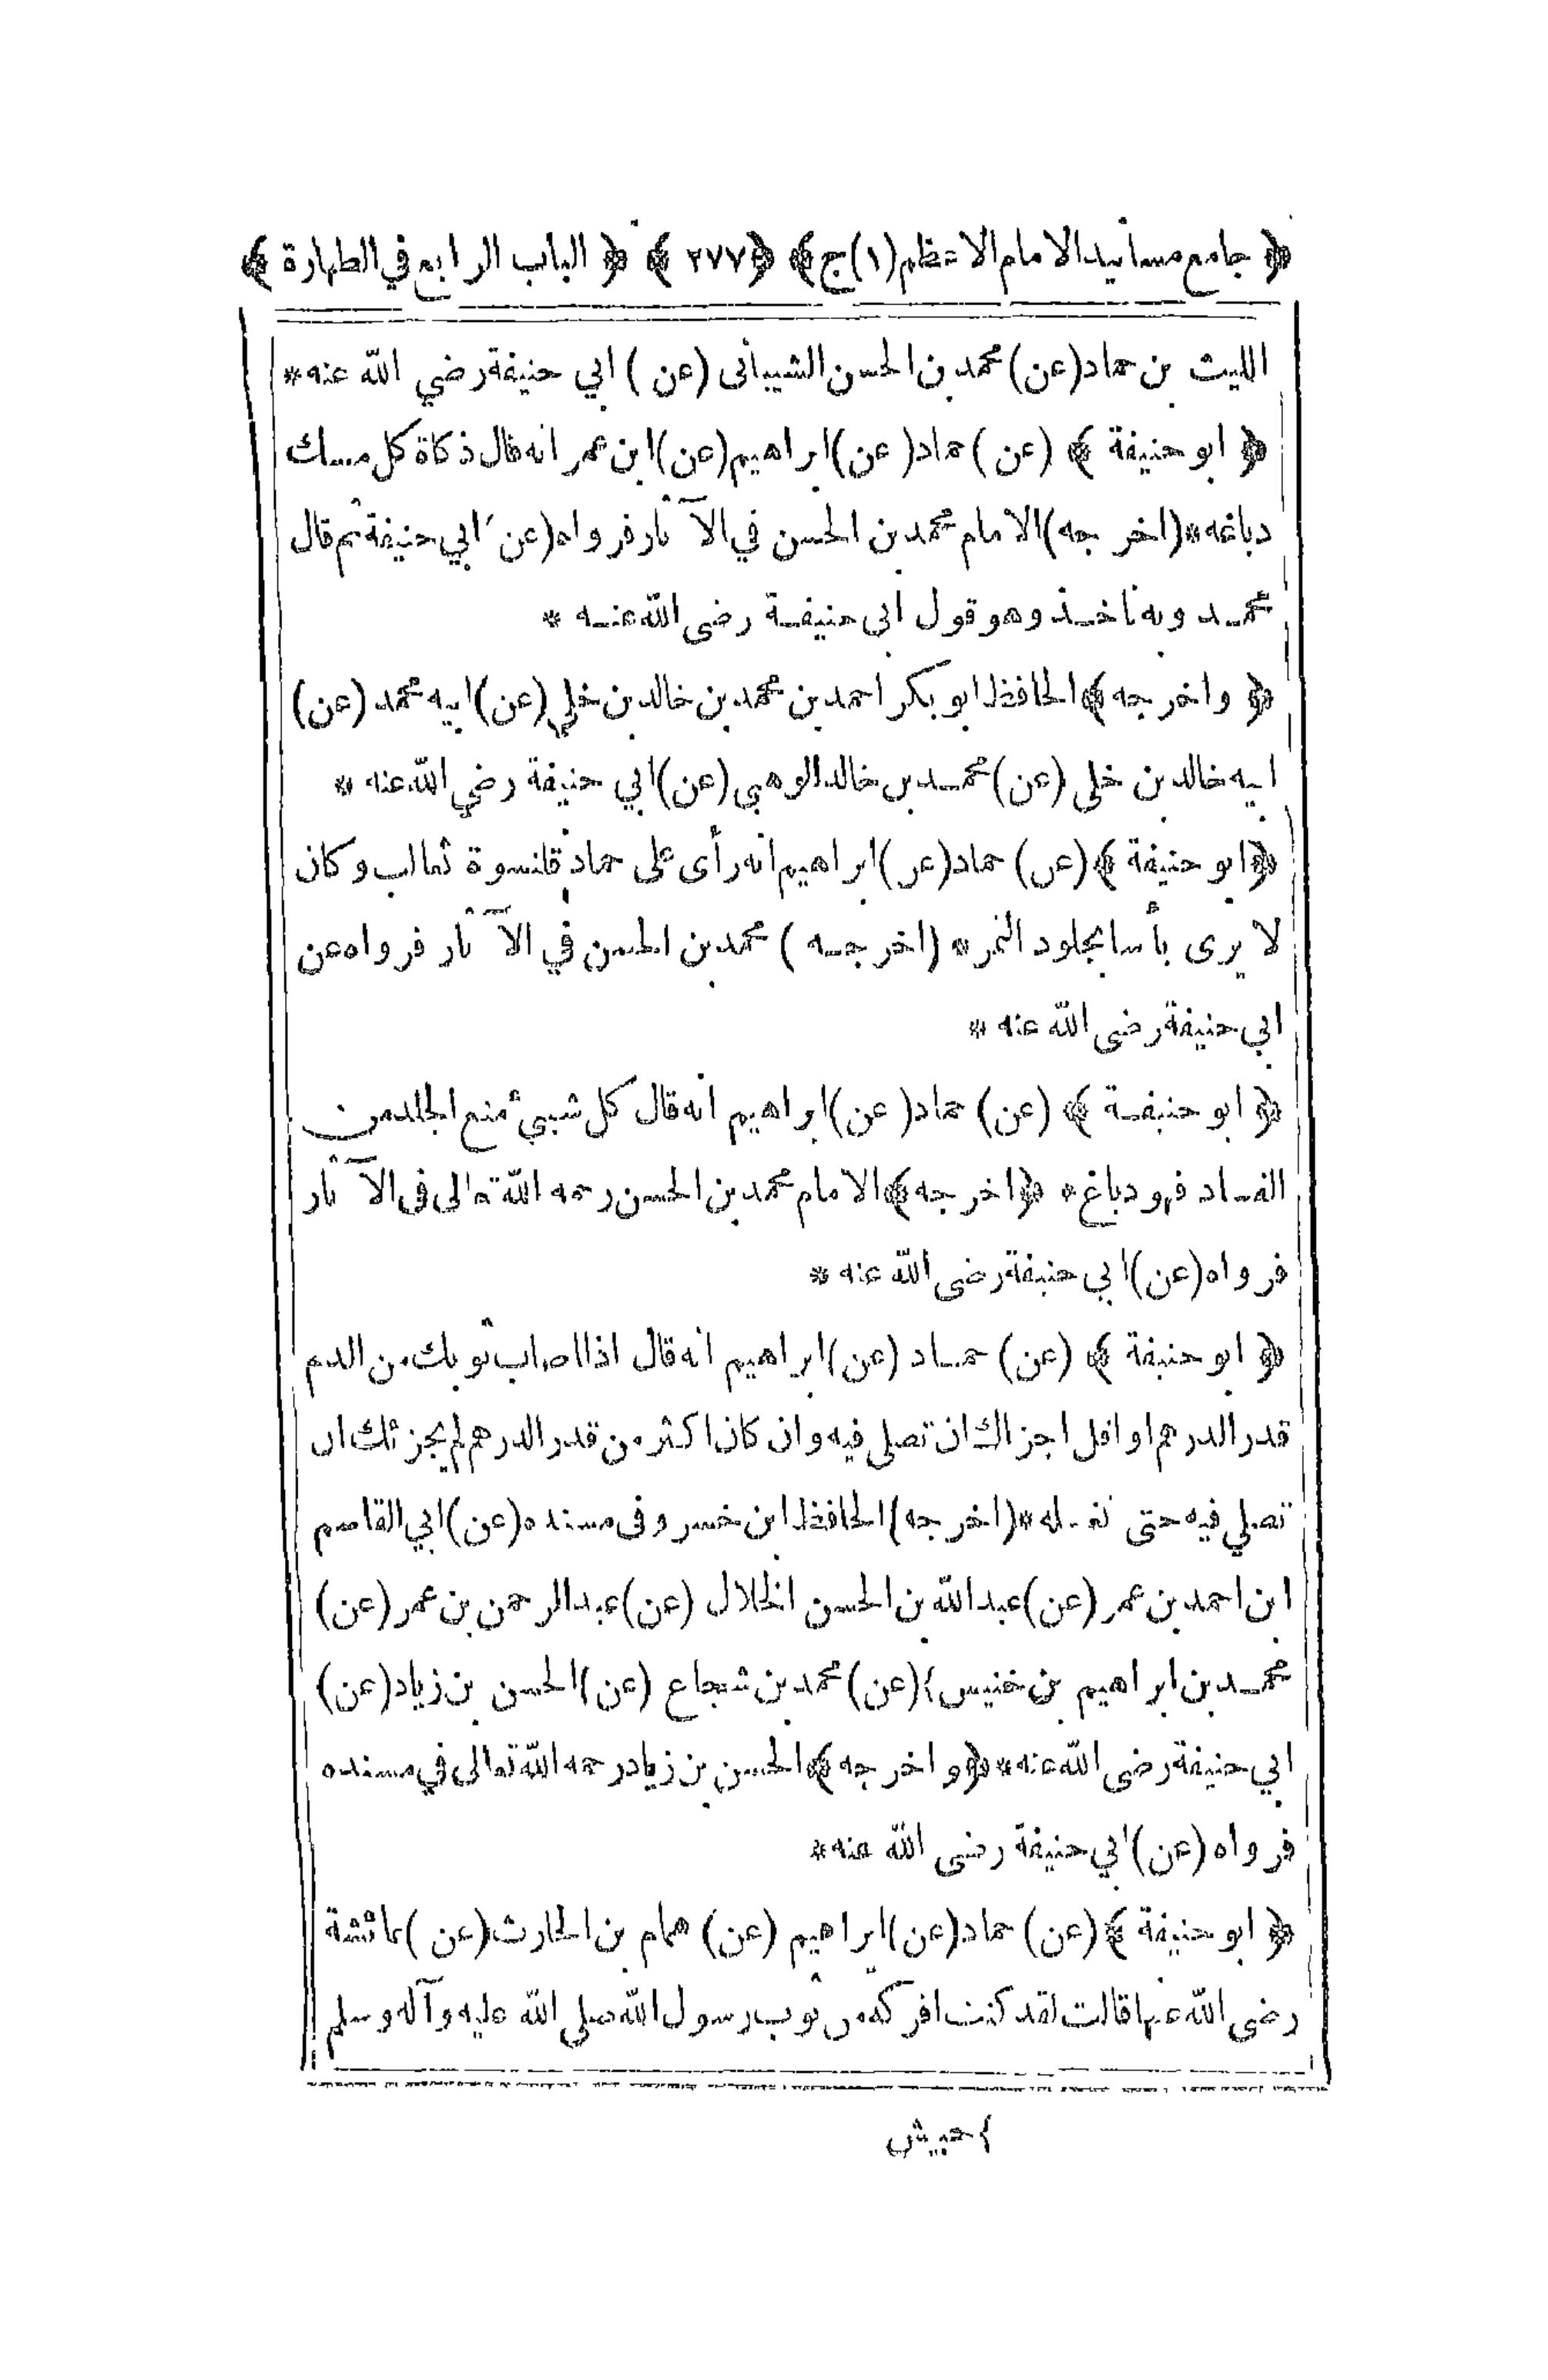 ﴿ جامع مسانيد الامام الاعظم (١) ج ﴾ ﴿ ٢٧٧ ﴾ ﴿ الباب الرابع في الطهارة ﴾
الليث بن حماد (عن) محمد بن الحسن الشيباني (عن) ابي حنيفة رضي الله عنه *
﴿ ابو حنيفة ﴾ (عن) حماد (عن) ابراهيم (عن) ابن عمر انه قال ذكاة كل مسك
دباغه * (اخرجه) الامام محمد بن الحسن في الآثار فرواه (عن) ابي حنيفة ثم قال
محمد وبه نأخذ وهو قول ابي حنيفة رضى الله عنه *
﴿ واخرجه ﴾ الحافظ ابو بكر احمد بن محمد بن خالد بن خلي (عن) ابيه محمد (عن)
ابيه خالد بن خلي (عن) محمد بن خالد الوهبي (عن) ابي حنيفة رضي الله عنه *
﴿ ابو حنيفة ﴾ (عن) حماد (عن) ابراهيم انه رأى على حماد قلنسوة ثعالب وكان
لا يرى بأسا بجلود النمر * (اخرجه) محمد بن الحسن في الآثار فرواه عن
ابي حنيفة رضى الله عنه *
﴿ ابو حنيفة ﴾ (عن) حماد (عن) ابراهيم انه قال كل شيئ منع الجلد من
الفساد فهو دباغ * ﴿ اخرجه ﴾ الامام محمد بن الحسن رحمه الله تعالى في الآثار
فرواه (عن) ابي حنيفة رضى الله عنه *
﴿ ابو حنيفة ﴾ (عن) حماد (عن) ابراهيم انه قال اذا اصاب ثوبك من الدم
قدر الدرهم او اقل اجزاك ان تصلي فيه وان كان اكثر من قدر الدرهم لم يجزئك ان
تصلي فيه حتى تغسله * (اخرجه) الحافظ ابن خسرو في مسنده (عن) ابي القاسم
ابن احمد بن عمر (عن) عبد الله بن الحسن الخلال (عن) عبد الرحمن بن عمر (عن)
محمد بن ابراهيم بن خنيس } (عن) محمد بن شجاع (عن) الحسن بن زياد (عن)
ابي حنيفة رضى الله عنه * ﴿ واخرجه ﴾ الحسن بن زياد رحمه الله تعالى في مسنده
فرواه (عن) ابي حنيفة رضى الله عنه *
﴿ ابو حنيفة ﴾ (عن) حماد (عن) ابراهيم (عن) همام بن الحارث (عن) عائشة
رضى الله عنها قالت لقد كنت افركه من ثوب رسول الله صلى الله عليه وآله وسلم
} حبيش